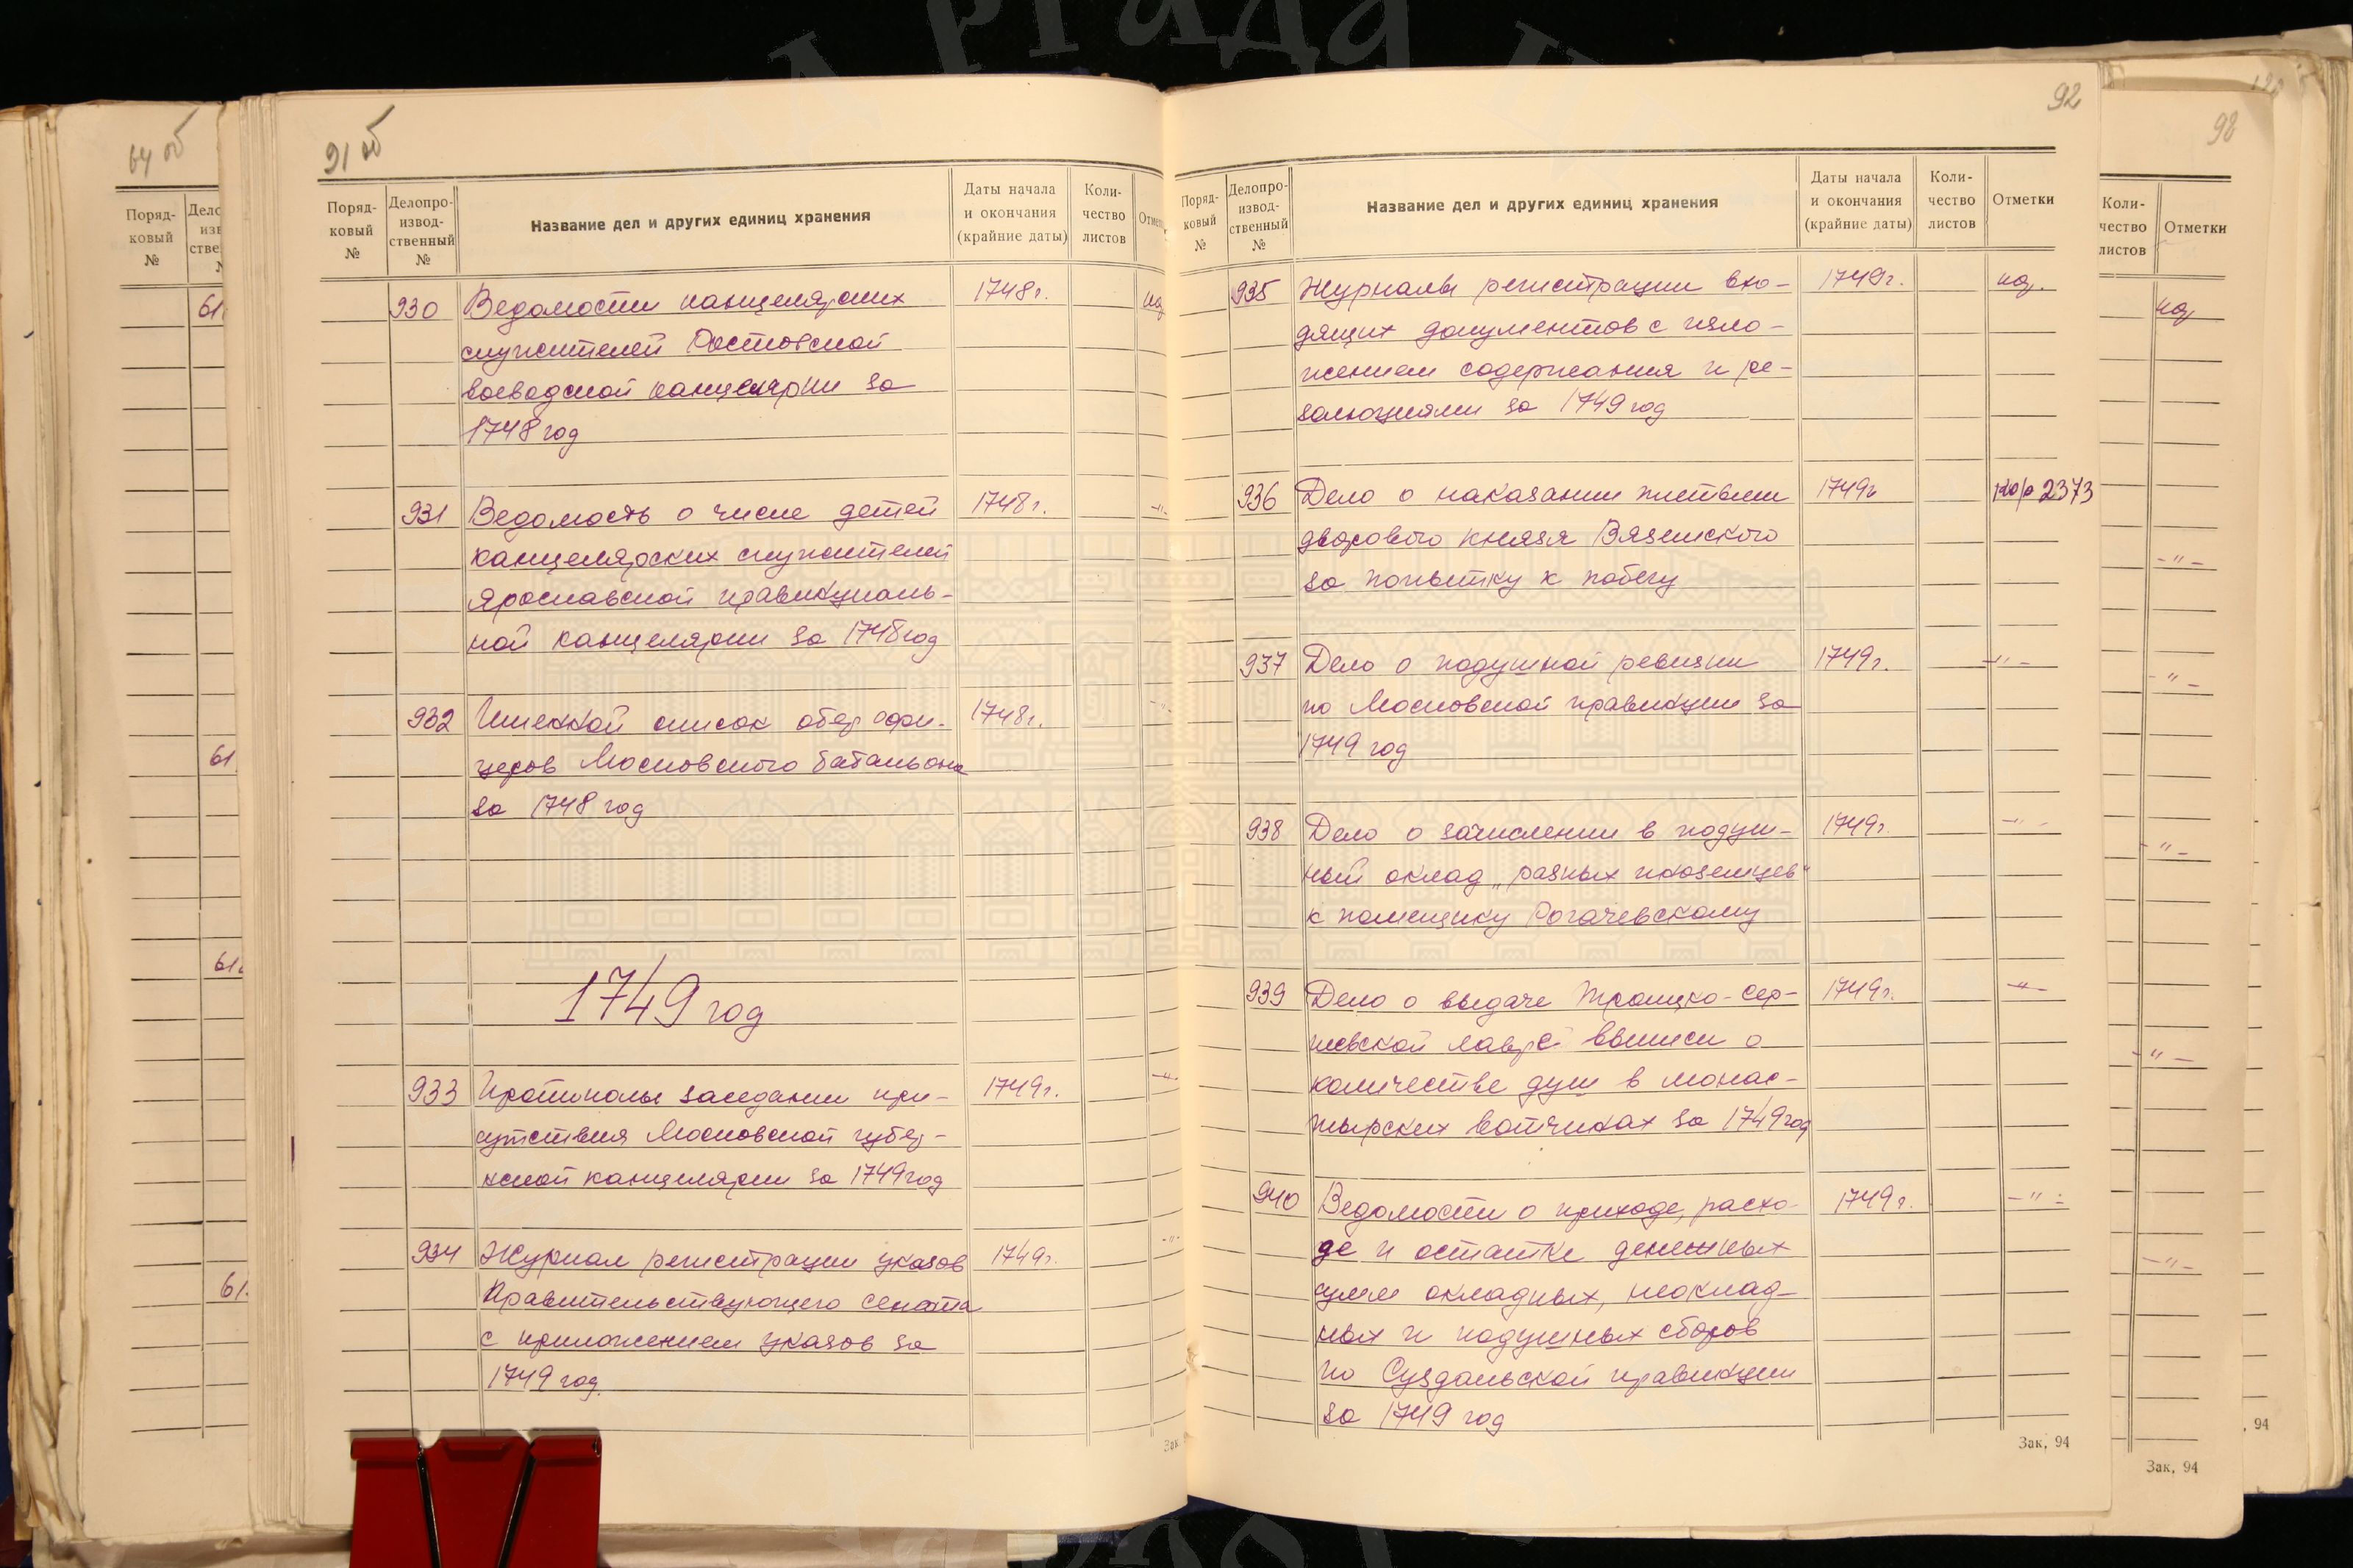 91 об
Поряд-
ковый
№
Делопро-
извод-
ственный
№
Название дел и других единиц хранения
Даты начала
и окончания
(крайние даты)
Коли-
чество
листов
930 Ведомости канцелярских 1748 г.
служителей Ростовской
воеводской канцелярии за
1748 год
931 Ведомость о числе детей 1748 г. -"-
канцелярских служителей
Ярославской провинциаль-
ной канцелярии за 1748 год
932 Именной список обер офи- 1748 г. -"-
церов Московского батальона
за 1748 год
1749 год
933 Протоколы заседании при- 1749 г. -"-
сутствия Московской губер-
нской канцелярии за 1749 год
934 Журнал регистрации указов 1749 г. -"-
Правительствующего сената
с приложением указов за
1749 год.
92
Поряд-
ковый
№
Делопро-
извод-
ственный
№
Название дел и других единиц хранения
Даты начала
и окончания
(крайние даты)
Коли-
чество
листов
Отметки
935 Журналы регистрации вхо- 1749 г.
дящих документов с изло-
жением содержания и ре-
золюциями за 1749 год
936 Дело о наказании плетьми 1749 г 2373
дворового князя Вяземского
за попытку к побегу
937 Дело о подушной ревизии 1749 г. -"-
по Московской провинции за
1749 год
938 Дело о зачислении в подуш- 1749 г. -"-
ный оклад „разных иноземцев"
к помещику Рогачевскому
939 Дело о выдаче Троицко-Сер- 1749 г. -"-
гиевской лавре выписи о
количестве душ в монас-
тырских вотчинах за 1749 год
940 Ведомости о приходе, расхо- 1749 г. -"-
де и остатке денежных
сумм окладных, неоклад-
ных и подушных сборов
по Суздальской провинции
за 1749 год
Зак. 94
64 об
Поряд-
ковый
№
98
Коли-
чество
листов
Отметки
-"-
-"-
-"-
-"-
-"-
Зак. 94